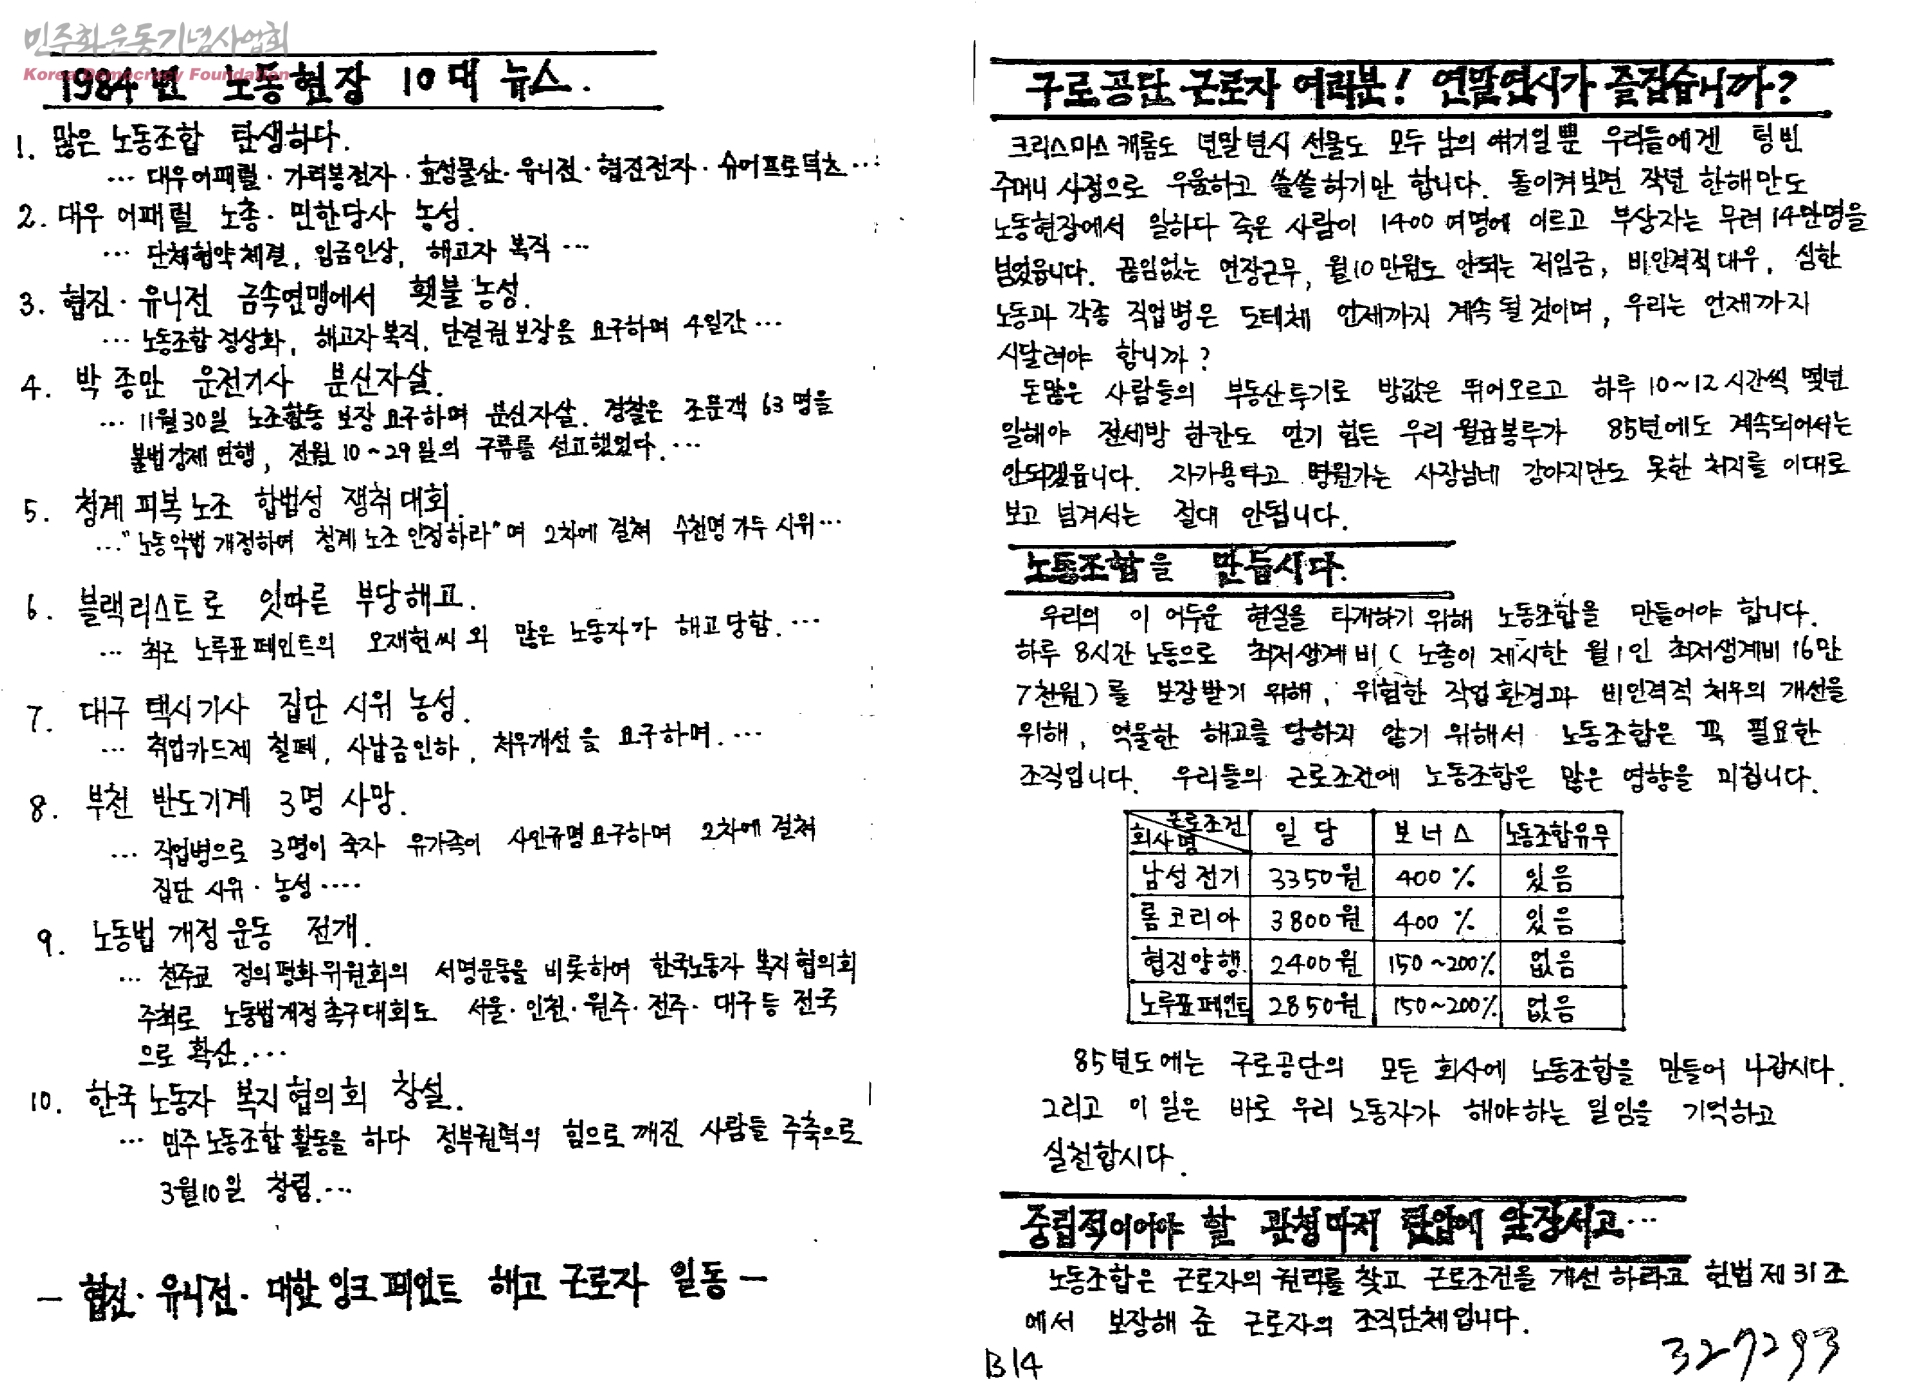 민주화운동기념사업회
Korea Democracy Foundation
1984년 노동현장 10대 뉴스.
1. 많은 노동조합 탄생하다.
… 대우어패럴·가리봉전자·효성물산·유니전·협진전자·슈어프로덕츠…
2. 대우 어패럴 노총·민한당사 농성.
… 단체협약체결, 임금인상, 해고자 복직 …
3. 협진·유니전 금속연맹에서 횃불 농성.
… 노동조합 정상화, 해고자복직, 단결권보장을 요구하며 4일간 …
4. 박종만 운전기사 분신자살.
… 11월30일 노조활동 보장 요구하며 분신자살. 경찰은 조문객 63명을
불법강제연행, 전원 10~29일의 구류를 선고했었다.…
5. 청계피복노조 합법성 쟁취대회.
…"노동악법개정하여 청계노조인정하라"며 2차에 걸쳐 수천명가두시위…
6. 블랙리스트로 잇따른 부당해고.
… 최근 노루표페인트의 오재헌씨외 많은 노동자가 해고당함.…
7. 대구 택시기사 집단 시위 농성.
… 취업카드제 철폐, 사납금인하, 처우개선을 요구하며.…
8. 부천 반도기계 3명 사망.
… 직업병으로 3명이 죽자 유가족이 사인규명요구하며 2차에 걸쳐
집단 시위·농성….
9. 노동법개정운동 전개.
… 천주교 정의평화위원회의 서명운동을 비롯하여 한국노동자 복지협의회
주최로 노동법개정촉구대회도 서울·인천·원주·전주·대구등 전국
으로 확산.…
10. 한국노동자 복지협의회 창설.
… 민주노동조합활동을 하다 정부권력의 힘으로 깨진 사람들 주축으로
3월10일 창립.…
- 협진·유니전·대한잉크페인트 해고 근로자 일동 -
구로공단 근로자 여러분! 연말연시가 즐겁습니까?
크리스마스 캐롬도 년말년시 선물도 모두 남의 얘기일뿐 우리들에겐 텅빈
주머니 사정으로 우울하고 쓸쓸하기만 합니다. 돌이켜보면 작년 한해만도
노동현장에서 일하다 죽은 사람이 1400여명에 이르고 부상자는 무려14만명을
넘었읍니다. 끊임없는 연장근무, 월10만원도 안되는 저임금, 비인격적대우, 심한
노동과 각종 직업병은 도데체 언제까지 계속될것이며, 우리는 언제까지
시달려야 합니까?
돈많은 사람들의 부동산투기로 방값은 뛰어오르고 하루 10~12시간씩 몇년
일해야 전세방 한칸도 얻기 힘든 우리 월급봉투가 85년에도 계속되어서는
안되겠읍니다. 자가용타고 병원가는 사장님네 강아지만도 못한 처지를 이대로
보고 넘겨서는 절대 안됩니다.
노동조합을 만듭시다.
우리의 이 어두운 현실을 타개하기 위해 노동조합을 만들어야 합니다.
하루 8시간노동으로 최저생계비(노총이 제시한 월1인 최저생계비16만
7천원)를 보장받기 위해, 위험한 작업환경과 비인격적 처우의 개선을
위해, 억울한 해고를 당하지 않기 위해서 노동조합은 꼭 필요한
조직입니다. 우리들의 근로조건에 노동조합은 많은 영향을 미칩니다.
회사명 근로조건 일당 보너스 노동조합유무
남성전기 3350원 400% 있음
롬코리아 3800원 400% 있음
협진양행 2400원 150~200% 없음
노루표페인트 2850원 150~200% 없음
85년도에는 구로공단의 모든 회사에 노동조합을 만들어 나갑시다.
그리고 이 일은 바로 우리 노동자가 해야하는 일임을 기억하고
실천합시다.
중립적이어야 할 관청마저 탄압에 앞장서고…
노동조합은 근로자의 권리를 찾고 근로조건을 개선하라고 헌법제31조
에서 보장해 준 근로자의 조직단체입니다.
B14
327293